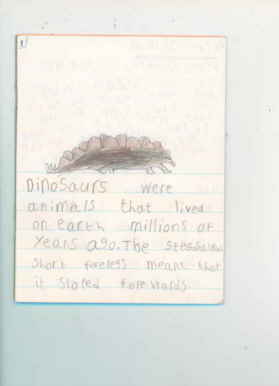 1
Dinosaurs were
animals that lived
on earth millions of
Years ago. The
short forelegs meant that
it sloped forewards